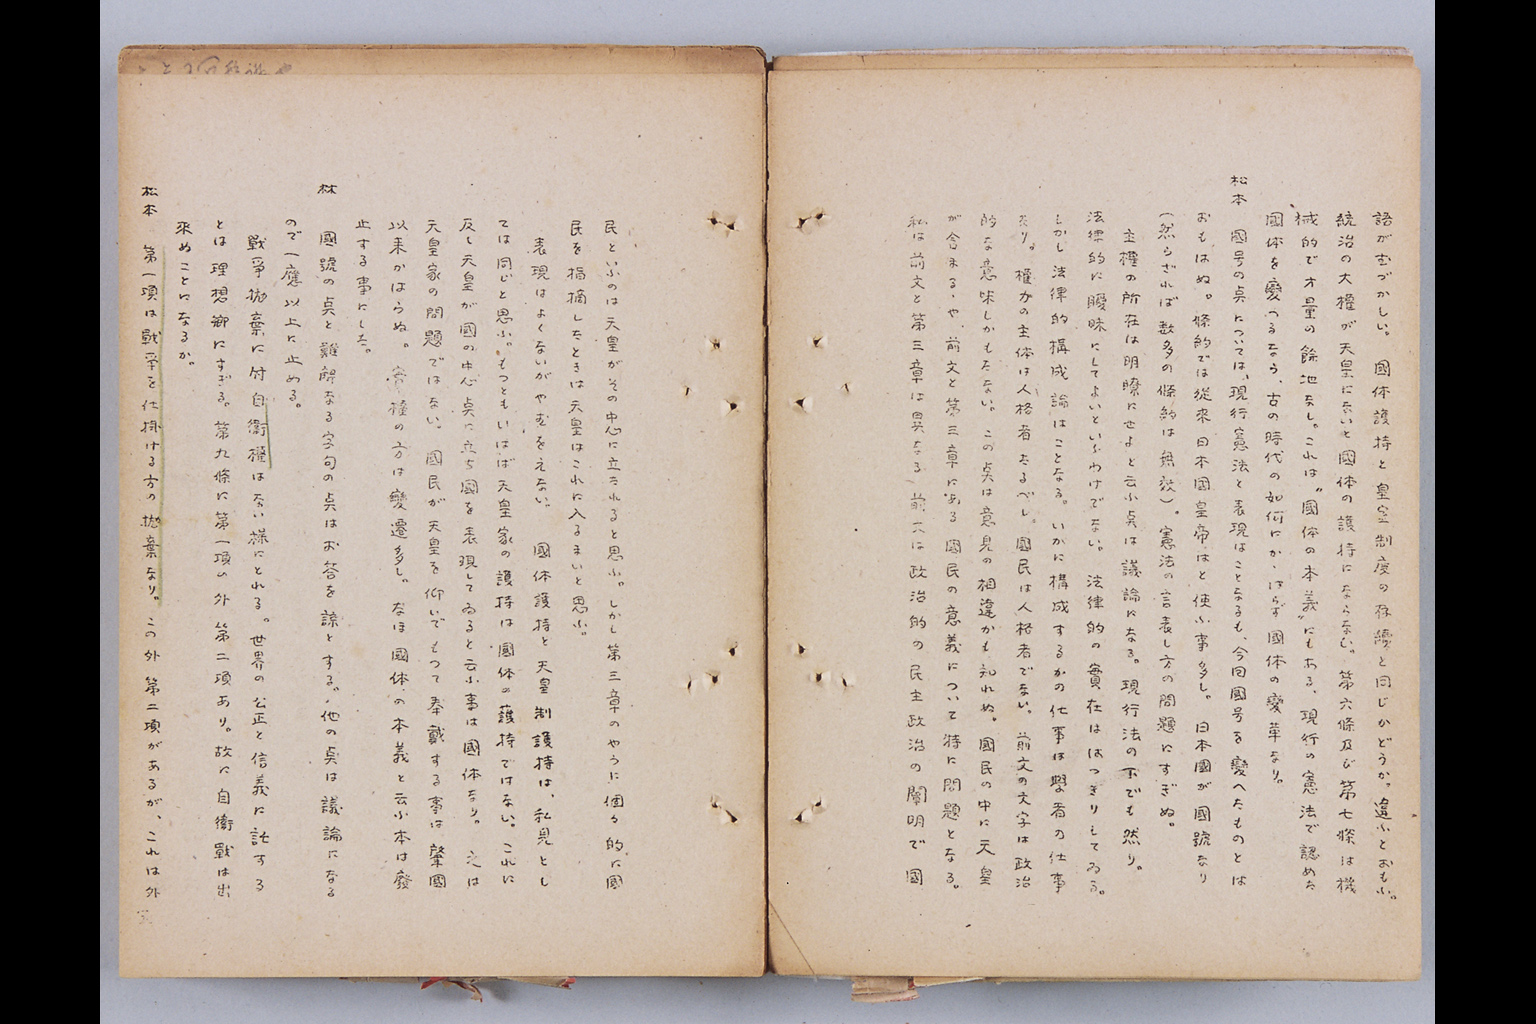 語がむづかしい。 国体護持と皇室制度の存續と同じかどうか。違ふとおもふ。
統治の大權が天皇にないと國体の護持にならない。第六條及び第七條は機
械的で才量の餘地なし。これは〝國体の本義〟にもある、現行の憲法で認めた
國体を變へるなら、古の時代の如何にかゝはらず國体の變革なり。
松本 國号の㸃については、現行憲法と表現はことなるも、今回國号を變へたものとは
おもはぬ。條約では從來日本國皇帝はと使ふ事多し。 日本國が國號なり
(然らざれば数多の條約は無效)。憲法の言表し方の問題にすぎぬ。
主權の所在は明瞭にせよと云ふ㸃は議論になる。現行法の下でも然り。
法律的に曖昧にしてよいといふわけでない。 法律的の實在ははつきりしてゐる。
しかし法律的構成論はことなる。いかに構成するかの仕事は學者の仕事
たり。 權力の主体は人格者たるべし。國民は人格者でない。前文の文字は政治
的な意味しかもたない。この㸃は意見の相違かも知れぬ。國民の中に天皇
が含まるゝや、前文と第三章にある國民の意義について特に問題となる。
私は前文と第三章は異なる、前文は政治的の民主政治の闡明で國
民といふのは天皇がその中心に立たれると思ふ。しかし第三章のやうに個々的に國
民を指摘したときは天皇はこれに入るまいと思ふ。
表現はよくないがやむをえない。 國体護持と天皇制護持は、私見とし
ては同じと思ふ。もつともいはば天皇家の護持は國体の護持ではない。これに
反し天皇が國の中心㸃に立ち國を表現してゐると云ふ事は國体なり。 之は
天皇家の問題ではない、國民が天皇を仰いでもつて奉戴する事は肇國
以来かはらぬ。 實權の方は變遷多し。なほ國体の本義と云ふ本は廢
止する事にした。
林 國號の㸃と難解なる字句の㸃はお答を諒とする。他の㸃は議論になる
ので一應以上に止める。
戰爭抛棄に付自衛權はない樣にとれる。世界の公正と信義に託する
とは理想郷にすぎる。第九條に第一項の外第二項あり。故に自衛戰は出
来ぬことになるか。
松本 第一項は戰爭を仕掛ける方の抛棄なり。この外第二項があるが、これは外